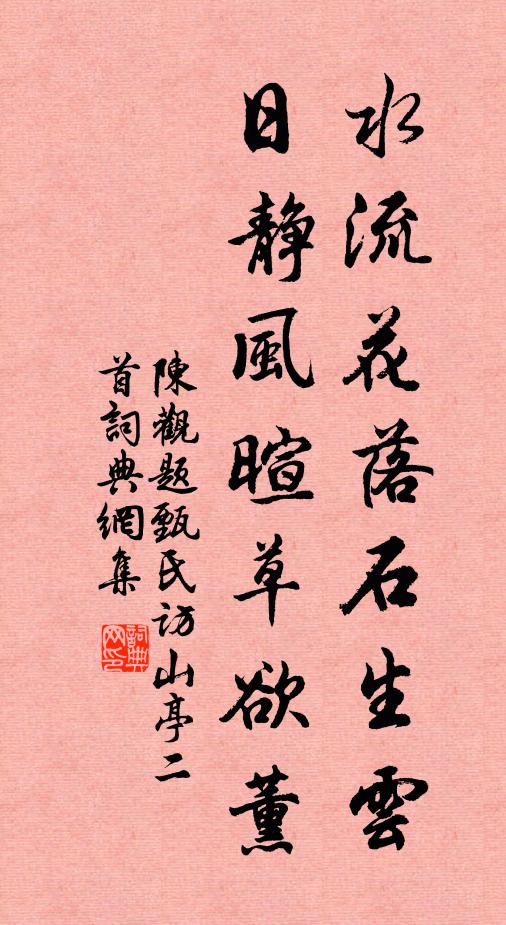 水流花落石生雲
日靜風暄草欲薰
陳觀題甄氏訪山亭二
首詞典網集
詞典网印